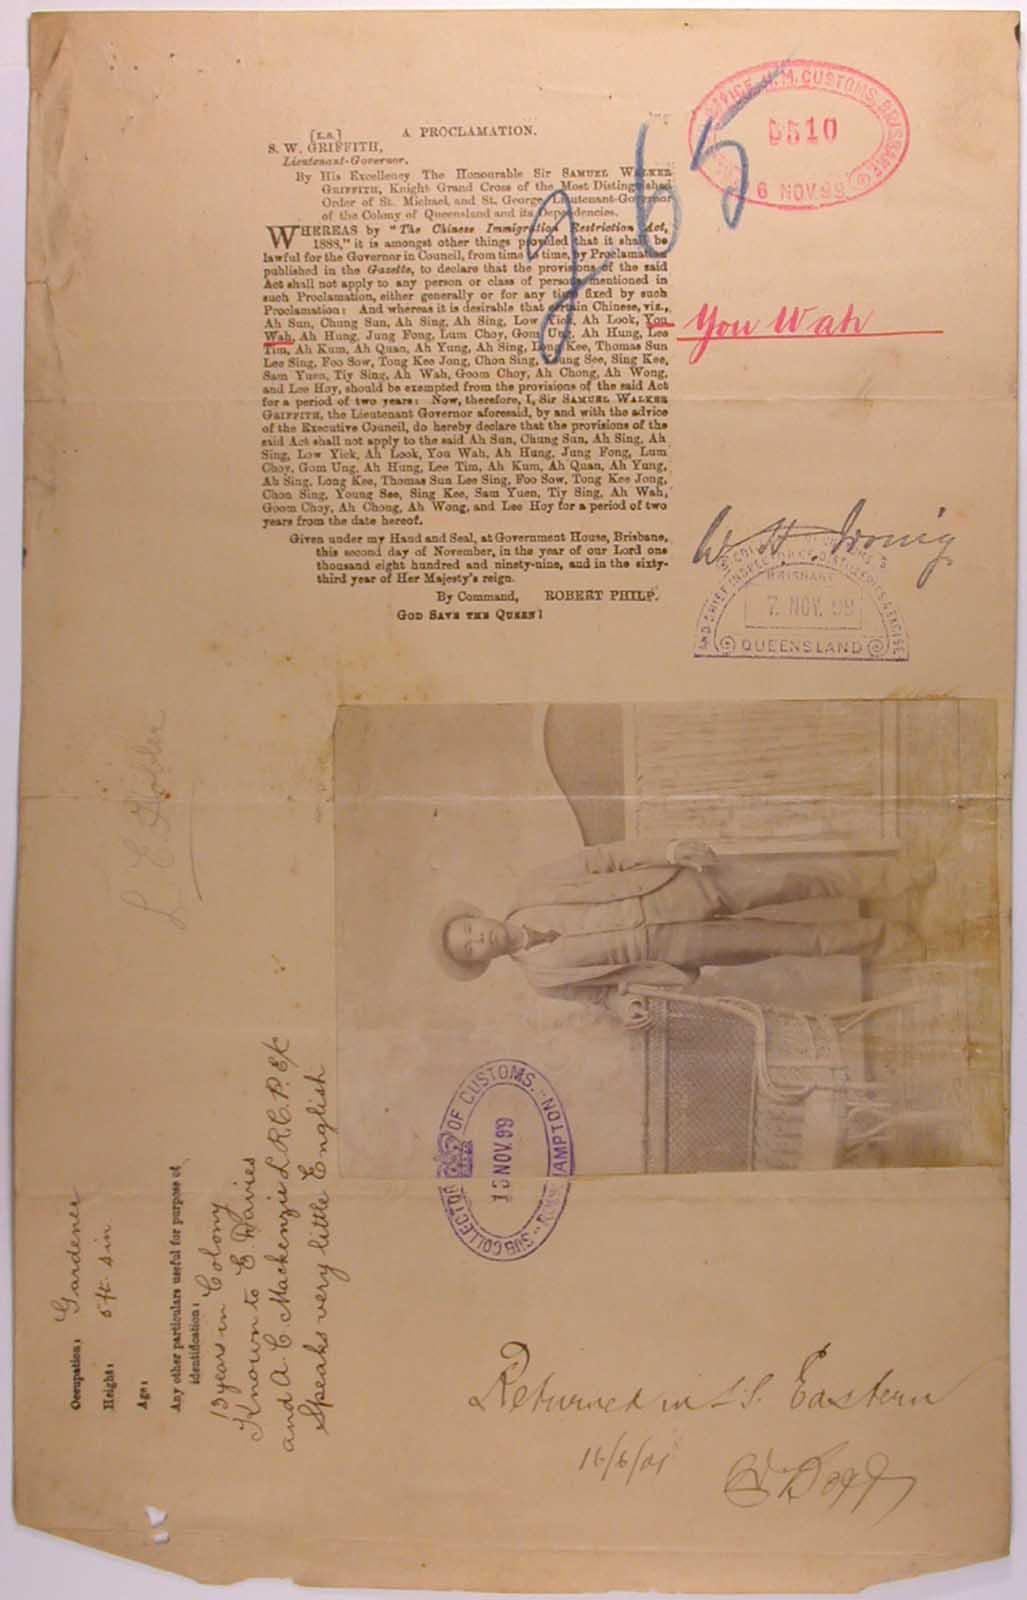 [L.S.] A PROCLAMATION.
S. W. GRIFFITH,
Lieutenant-Governor.
By His Excellency The Honourable Sir SAMUEL WALKER
GRIFFITH, Knight Grand Cross of the Most Distinguished
Order of St. Michael and St. George, Lieutenant-Governor
of the Colony of Queensland and its Dependencies.
WHEREAS by "The Chinese Immigration Restriction Act,
1888," it is amongst other things provided that it shall be
lawful for the Governor in Council, from time to time, by Proclamation
published in the Gazette, to declare that the provisions of the said
Act shall not apply to any person or class of persons mentioned in
such Proclamation, either generally or for any time fixed by such
Proclamation: And whereas it is desirable that certain Chinese, viz.,
Ah Sun, Chung Sun, Ah Sing, Ah Sing, Low Yick, Ah Look, You
Wah, Ah Hung, Jung Fong, Lum Choy, Gom Ung, Ah Hung, Lee
Tim, Ah Kum, Ah Quan, Ah Yung, Ah Sing, Long Kee, Thomas Sun
Lee Sing, Foo Sow, Tong Kee Jong, Chon Sing, Young See, Sing Kee,
Sam Yuen, Tiy Sing, Ah Wah, Goom Choy, Ah Chong, Ah Wong,
and Lee Hoy, should be exempted from the provisions of the said Act
for a period of two years: Now, therefore, I, Sir SAMUEL WALKER
GRIFFITH, the Lieutenant Governor aforesaid, by and with the advice
of the Executive Council, do hereby declare that the provisions of the
said Act shall not apply to the said Ah Sun, Chung Sun, Ah Sing, Ah
Sing, Low Yick, Ah Look, You Wah, Ah Hung, Jung Fong, Lum
Choy, Gom Ung, Ah Hung, Lee Tim, Ah Kum, Ah Quan, Ah Yung,
Ah Sing, Long Kee, Thomas Sun Lee Sing, Foo Sow, Tong Kee Jong,
Chon Sing, Young See, Sing Kee, Sam Yuen, Tiy Sing, Ah Wah,
Goom Choy, Ah Chong, Ah Wong, and Lee Hoy for a period of two
years from the date hereof.
Given under my Hand and Seal, at Government House, Brisbane,
this second day of November, in the year of our Lord one
thousand eight hundred and ninety-nine, and in the sixty-
third year of Her Majesty's reign.
By Command, ROBERT PHILP.
GOD SAVE THE QUEEN!
265
H.M. CUSTOMS, BRISBANE
5510
6 NOV. 99
You Wah
W. H. Irving
AND CHIEF INSPECTOR OF DISTILLERIES & EXCISE
BRISBANE
7. NOV. 99
QUEENSLAND
SUB COLLECTOR OF CUSTOMS.
13 NOV. 99
ROCKHAMPTON
Occupation: Gardener
Height: 5ft. 4in
Age:
Any other particulars useful for purpose of
identification:
13 years in Colony
Known to E. Davies
and A. C. Mackenzie L.R.C.P. &c
Speaks very little English
Returned in S.S. Eastern
16/6/01